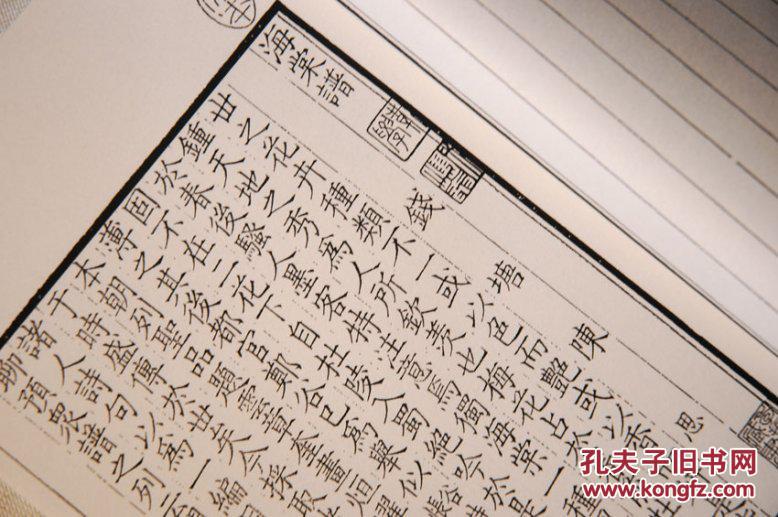 海棠譜
錢塘 陳 思
世之花卉種類不一或以色而艷或以香
鍾天地之秀爲人所欽羨也梅花占於
於春後騷人墨客特注意焉獨海棠一種
固不在二花下自杜陵入蜀絶吟於是
薄之其後都官鄭谷已爲舉似
本朝列聖品題雲章奎畫烜耀
于時盛傳於世矣今採取
諸人詩句以爲一編
聊預衆譜之列云
孔夫子旧书网
www.kongfz.com